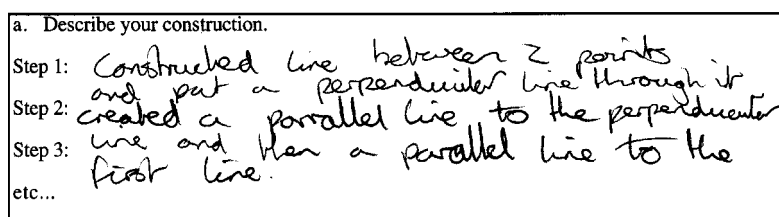 a. Describe your construction.
Step 1: Constructed line between 2 points
and put a perpenduiter line through it
Step 2: created a parrallel line to the perpenducuter
Step 3: line and then a parallel line to the
first line.
etc...